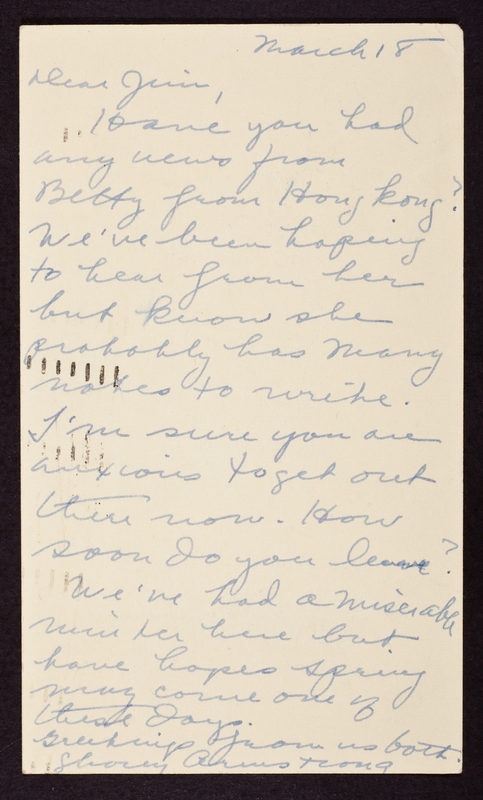 March 18
Dear Jim,
Have you had
any news from
Betty from Hong Kong?
We've been hoping
to hear from her
but know she
probably has many
notes to write.
I'm sure you are
anxious to get out
there now. How
soon do you leave?
We've had a miserable
winter here but
have hopes spring
may come one of
these days.
Greetings from us both.
Armstrong